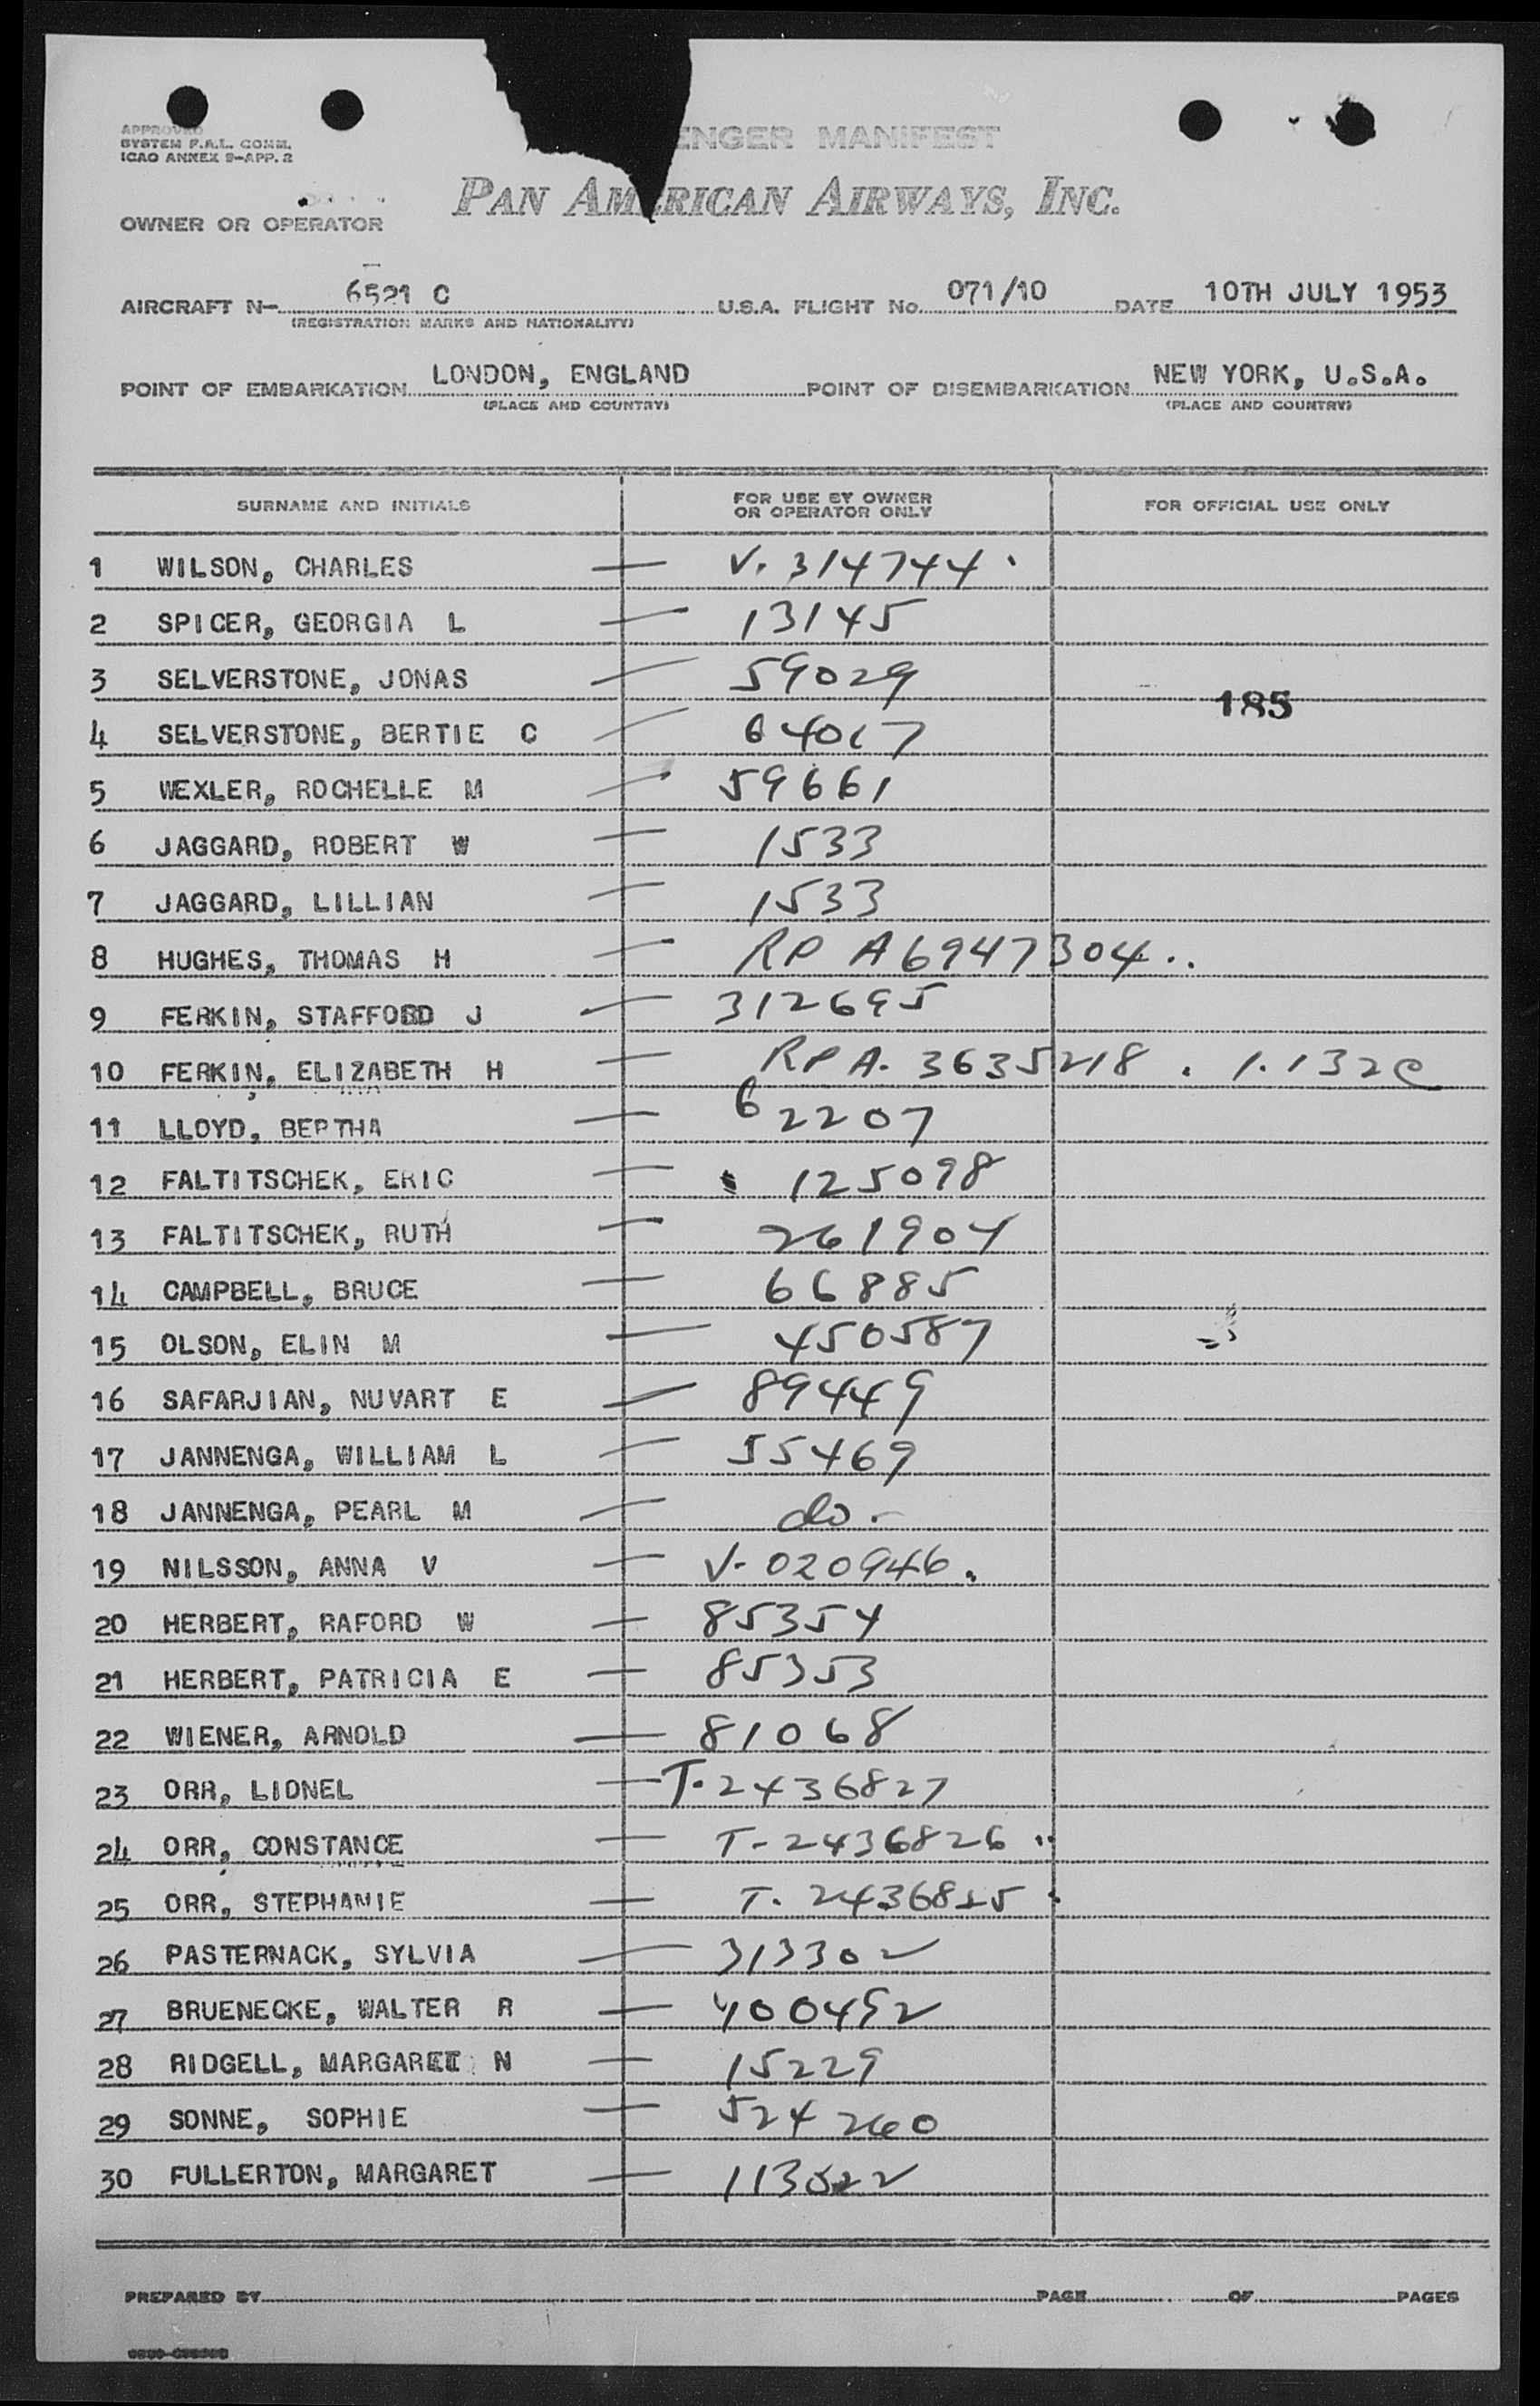 APPROVED
SYSTEM F.A.L. COMM.
ICAO ANNEX 9-APP. 2
ENGER MANIFEST
PAN AMERICAN AIRWAYS, INC.
OWNER OR OPERATOR
AIRCRAFT N- 6521 C U.S.A. FLIGHT No. 071/10 DATE 10TH JULY 1953
(REGISTRATION MARKS AND NATIONALITY)
POINT OF EMBARKATION LONDON, ENGLAND POINT OF DISEMBARKATION NEW YORK, U.S.A.
(PLACE AND COUNTRY) (PLACE AND COUNTRY)
SURNAME AND INITIALS FOR USE BY OWNER OR OPERATOR ONLY FOR OFFICIAL USE ONLY
1 WILSON, CHARLES — V. 314744.
2 SPICER, GEORGIA L — 13145
3 SELVERSTONE, JONAS — 59029
185
4 SELVERSTONE, BERTIE C — 64017
5 WEXLER, ROCHELLE M — 59661
6 JAGGARD, ROBERT W — 1533
7 JAGGARD, LILLIAN — 1533
8 HUGHES, THOMAS H — RP A6947304..
9 FERKIN, STAFFORD J — 312695
10 FERKIN, ELIZABETH H — RP A. 3635218 . 1.132e
11 LLOYD, BERTHA — 62207
12 FALTITSCHEK, ERIC — 125098
13 FALTITSCHEK, RUTH — 261904
14 CAMPBELL, BRUCE — 66885
15 OLSON, ELIN M — 450587
16 SAFARJIAN, NUVART E — 89449
17 JANNENGA, WILLIAM L — 55469
18 JANNENGA, PEARL M — do.-
19 NILSSON, ANNA V — V- 020946.
20 HERBERT, RAFORD W — 85354
21 HERBERT, PATRICIA E — 85353
22 WIENER, ARNOLD — 81068
23 ORR, LIONEL — T-2436827
24 ORR, CONSTANCE — T-2436826
25 ORR, STEPHANIE — T. 2436825
26 PASTERNACK, SYLVIA — 313302
27 BRUENECKE, WALTER R — 400492
28 RIDGELL, MARGARET N — 15229
29 SONNE, SOPHIE — 524260
30 FULLERTON, MARGARET — 113022
PREPARED BY PAGE OF PAGES